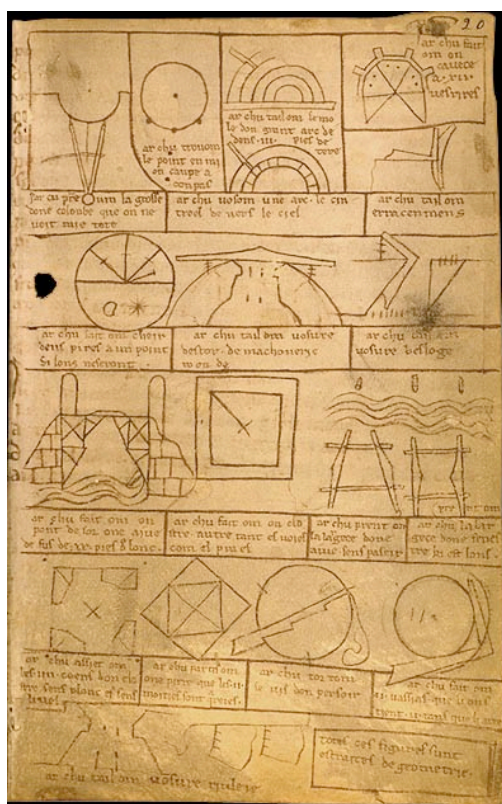 20
ar chu fait
om on
cavece
a · xii ·
vesrires
ar chu tail om le mo
le don grant arc de
dens · iii · pies de
tere
ar chu trovom
le point en mi
on canpe a
conpas
par cu prent om la grosse
done colonbe que on ne
voit mie tote
ar chu vosom une arc · le cin
treel de vers le ciel
ar chu tail om
erracenmens
ar chu fait om cheir
deus pires a un point
si lons ne seront
ar chu tail om vosure
destor · de machonerie
ronde
ar chu tail om
vosure besloge
ar chu fait om on
pont desor one aive
de fus de · xx · pies de lonc
ar chu fait om on clo
stre · autre tant es voies
com el prael
ar chu prent om
la largece done
aive sens paseir
ar chu prent om
la lar
gece done fenes
tre ki est lons
ar chu assiet om
les iiii · coens don clo
stre sens plonc et sens
livel
ar chu partis om
one pirre que les · ii ·
moities sont qureies
ar chu tor tom
le vis don persoir
ar chu fait om
· ii · vassias que li ons
tient · ii · tans que li atres
totes ces figures sunt
estraites de geometrie ·
ar chu tail om vosure riuleie